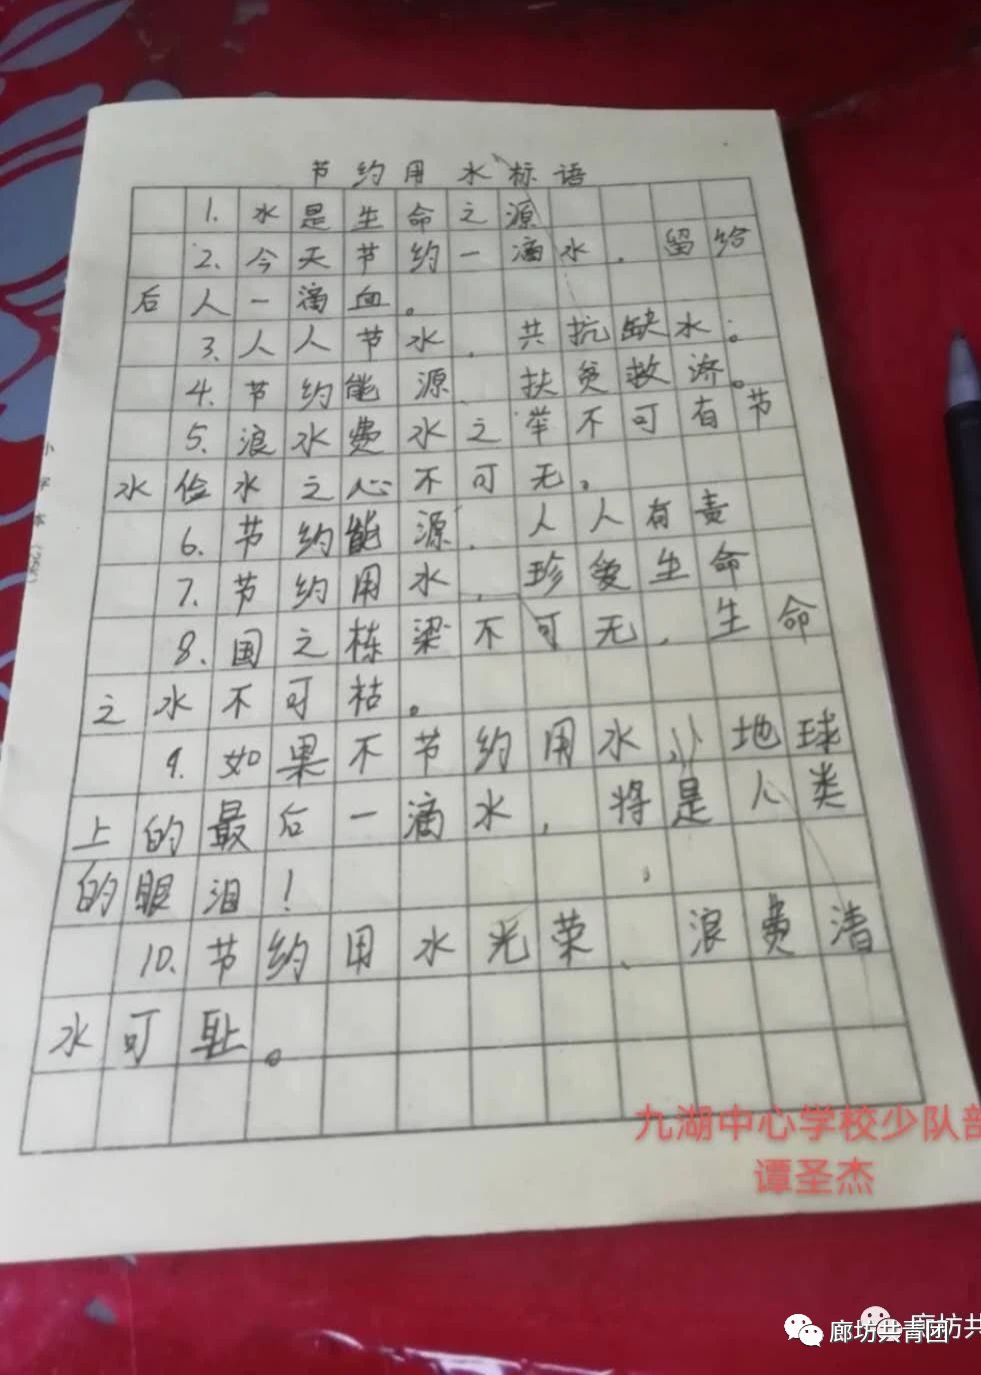 节约用水标语
1. 水是生命之源
2. 今天节约一滴水，留给
后人一滴血。
3. 人人节水，共抗缺水。
4. 节约能源、扶贫救济。
5. 浪水费水之举不可有节
水俭水之心不可无。
6. 节约能源，人人有责
7. 节约用水，珍爱生命
8. 国之栋梁不可无，生命
之水不可枯。
9. 如果不节约用水，地球
上的最后一滴水，将是人类
的眼泪！
10. 节约用水光荣、浪费清
水可耻。
九湖中心学校少队部
谭圣杰
廊坊共青团
廊坊共